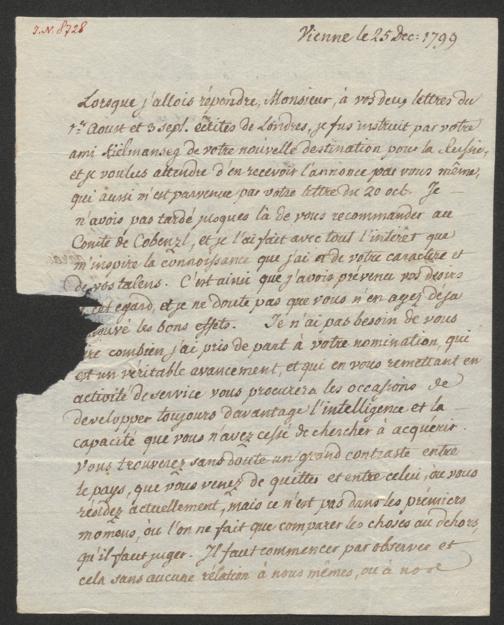 I.N. 8728
Vienne le 25 Dec: 1799
Lorsque j'allois répondre, Monsieur, à vos deux lettres du
1er Aoust et 3 sept. écrites de Londres, je fus instruit par votre
ami Kielmanseg de votre nouvelle destination pour la Russie,
et je voulus attendre d'en recevoir l'annonce par vous même,
qui aussi m'est parvenue par votre lettre du 20 oct. Je
n'avois pas tardé jusques là de vous recommander au
Comte de Cobenzl, et je l'ai fait avec tout l'intérêt que
m'inspire la connoissance que j'ai de votre caractère et
de vos talens. C'est ainsi que j'avois prévenu vos desirs
cet egard, et je ne doute pas que vous n'en ayez déja
ouvé les bons effets. Je n'ai pas besoin de vous
re combien j'ai pris de part à votre nomination, qui
est un veritable avancement, et qui en vous remettant en
activité de service vous procurera les occasions de
developper toujours davantage l'intelligence et la
capacité que vous n'avez cessé de chercher à acquerir.
Vous trouverez sans doute un grand contraste entre
le pays, que vous venez de quitter et entre celui, ou vous
résidez actuellement, mais ce n'est pas dans les premiers
momens, où l'on ne fait que comparer les choses au dehors,
qu'il faut juger. Il faut commencer par observer et
cela sans aucune rélation à nous mêmes, ou à no